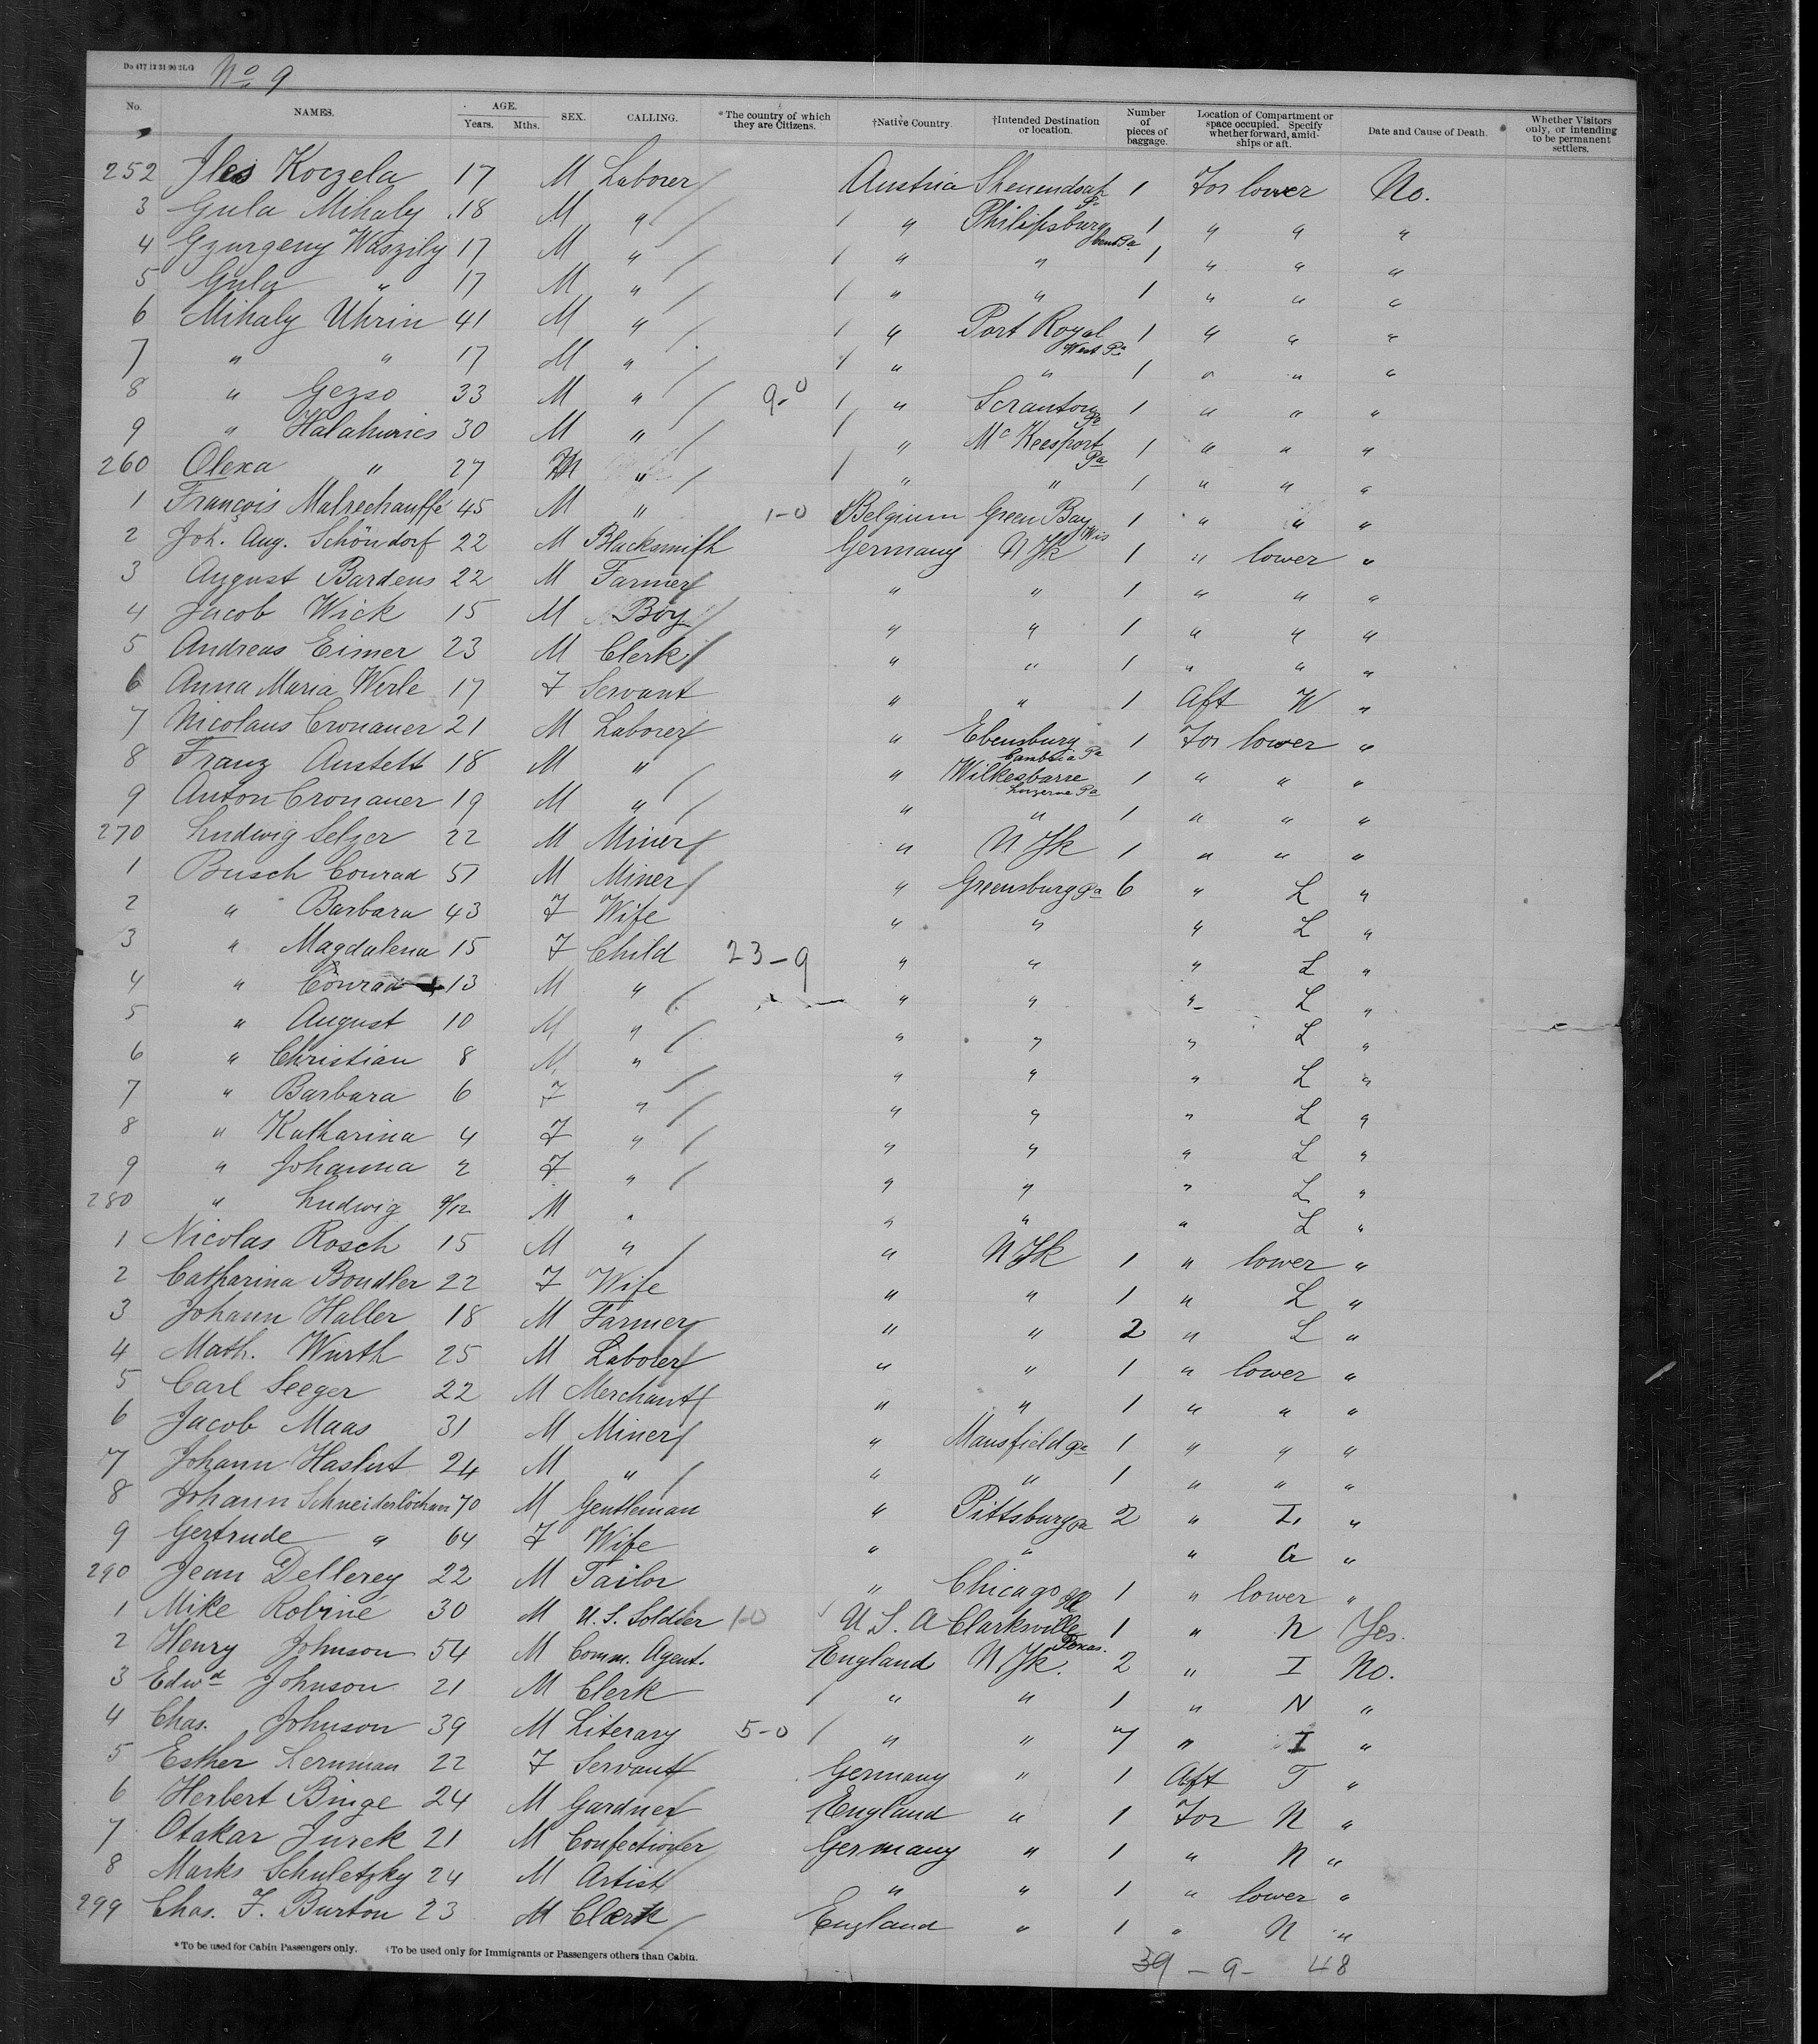 Du 477 12 31 90 2LG
No 9
No. NAMES. AGE. Years. Mths. SEX. CALLING. *The country of which they are Citizens. †Native Country. †Intended Destination or location. Number of pieces of baggage. Location of Compartment or space occupied. Specify whether forward, amidships or aft. Date and Cause of Death. Whether Visitors only, or intending to be permanent settlers.
252 Iles Koczela 17 M Laborer Austria Shenendoah Pa 1 For lower No.
3 Gula Mihaly 18 M " " Philipsburg Cent Pa 1 " " "
4 Gzurgeny Waszily 17 M " " " 1 " " "
5 Gula " 17 M " " " 1 " " "
6 Mihaly Uhrin 41 M " " Port Royal West Pa 1 " " "
7 " " 17 M " " " 1 " " "
8 " Gezso 33 M " 9-0 " Scranton Pa 1 " " "
9 " Halahurics 30 M " " McKeesport Pa 1 " " "
260 Olexa " 27 M " " " 1 " " "
1 François Malrechauffé 45 M " 1-0 Belgium Green Bay Wis 1 " " "
2 Joh. Aug. Schöndorf 22 M Blacksmith Germany N Yk 1 " lower "
3 August Bardens 22 M Farmer " " 1 " " "
4 Jacob Wick 15 M Boy " " 1 " " "
5 Andreas Eimer 23 M Clerk " " 1 " " "
6 Anna Maria Werle 17 F Servant " " 1 Aft W "
7 Nicolaus Cronauer 21 M Laborer " Ebensburg Cambria Pa 1 For lower "
8 Franz Anstett 18 M " " Wilkesbarre Luzerne Pa 1 " " "
9 Anton Cronauer 19 M " " " 1 " " "
270 Ludwig Selzer 22 M Miner " N Yk 1 " " "
1 Busch Conrad 51 M Miner " Greensburg Pa 6 " L "
2 " Barbara 43 F Wife " " " L "
3 " Magdalena 15 F Child 23-9 " " " L "
4 " Conrad 13 M " " " " L "
5 " August 10 M " " " " L "
6 " Christian 8 M " " " " L "
7 " Barbara 6 F " " " " L "
8 " Katharina 4 F " " " " L "
9 " Johanna 2 F " " " " L "
280 " Ludwig 9/12 M " " " " L "
1 Nicolas Rosch 15 M " " N Yk 1 " lower "
2 Catharina Boudler 22 F Wife " " 1 " L "
3 Johann Haller 18 M Farmer " " 2 " L "
4 Math. Wurth 25 M Laborer " " 1 " lower "
5 Carl Seeger 22 M Merchant " " 1 " " "
6 Jacob Maas 31 M Miner " Mansfield Pa 1 " " "
7 Johann Haslut 24 M " " " 1 " " "
8 Johann Schneiderlöchner 70 M Gentleman " Pittsburg Pa 2 " I "
9 Gertrude " 64 F Wife " " " G "
290 Jean Dellerey 22 M Tailor " Chicago Ill 1 " lower "
1 Mike Robiné 30 M U.S. Soldier 1-0 U. S. A Clarksville Texas. 1 " N Yes.
2 Henry Johnson 54 M Comm. Agent. England N Yk. 2 " I No.
3 Edwd Johnson 21 M Clerk " " 1 " N "
4 Chas. Johnson 39 M Literary 5-0 " " 7 " I "
5 Esther Lernman 22 F Servant Germany " 1 Aft T "
6 Herbert Binge 24 M Gardner England " 1 For N "
7 Otakar Jurek 21 M Confectioner Germany " 1 " N "
8 Marks Schuletzky 24 M Artist " " 1 " lower "
299 Chas. F. Burton 23 M Clerk England " 1 " N "
*To be used for Cabin Passengers only. †To be used only for Immigrants or Passengers others than Cabin.
39 - 9 - 48